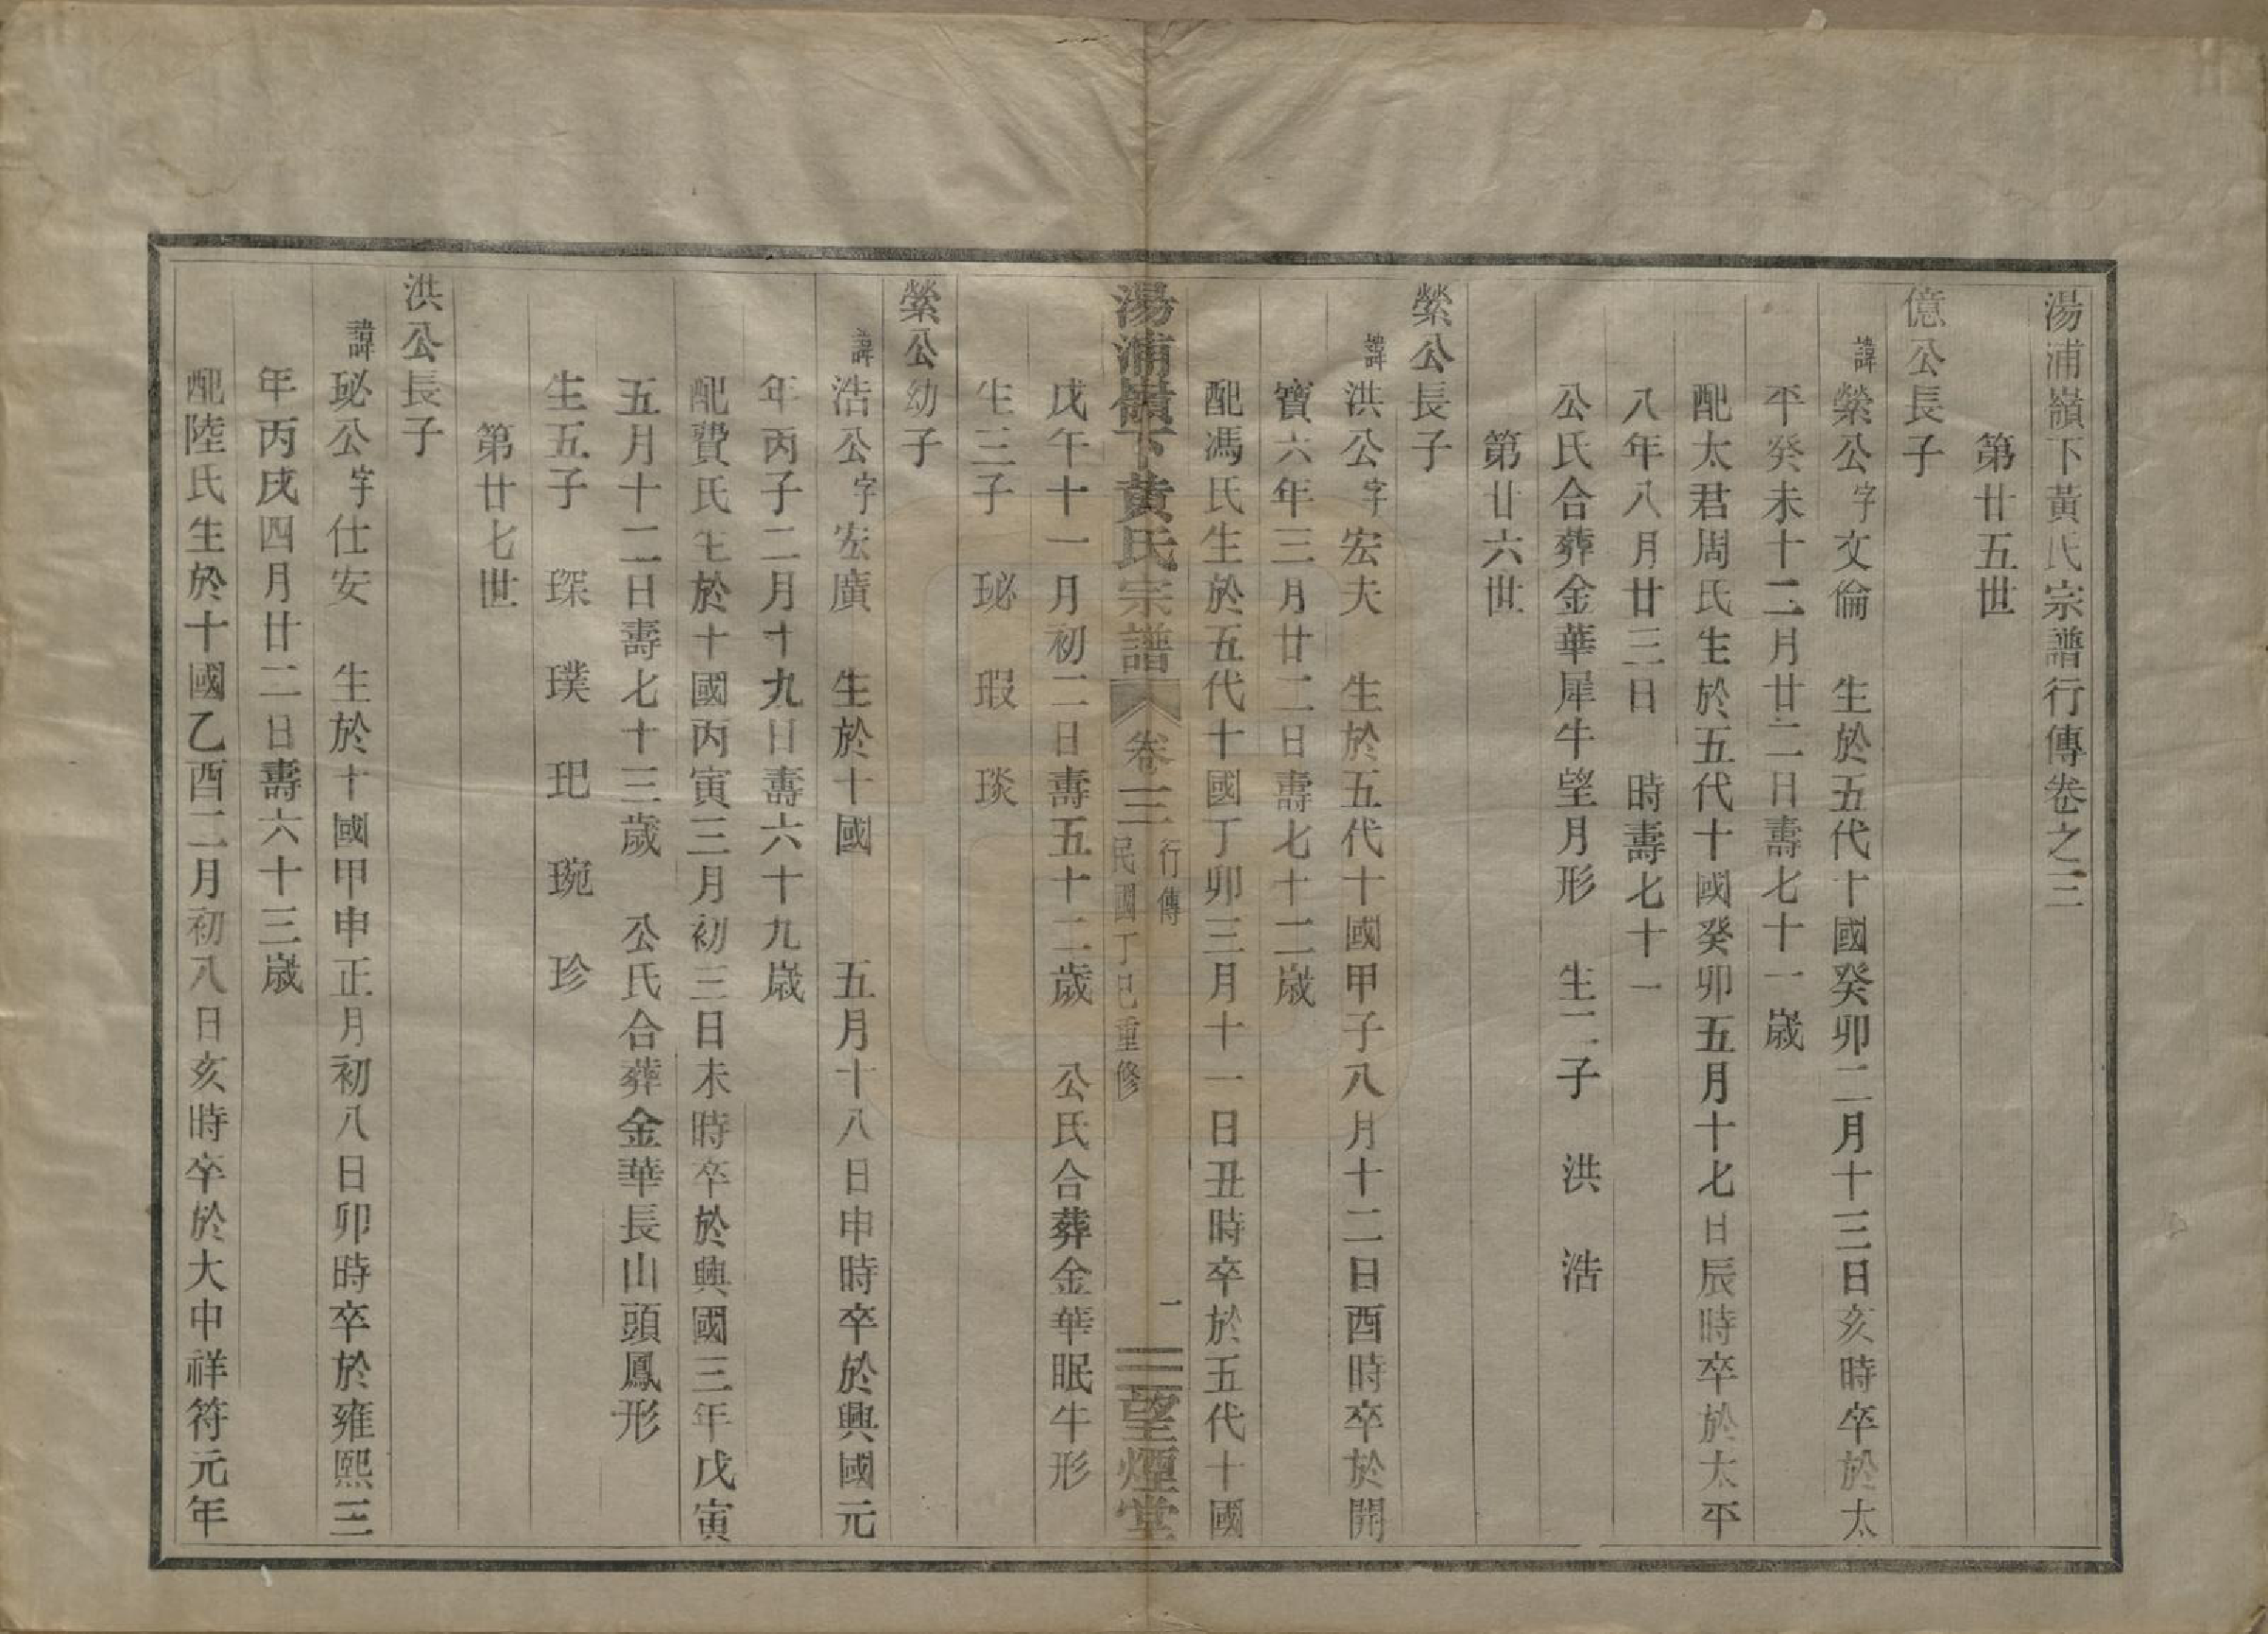 湯浦嶺下黃氏宗譜行傳卷之三
第廿五世
億公長子
諱縈公字文倫　生於五代十國癸卯二月十三日亥時卒於太
平癸未十二月廿二日壽七十一歲
配太君周氏生於五代十國癸卯五月十七日辰時卒於太平
八年八月廿三日　時壽七十一
公氏合葬金華犀牛望月形　生二子　洪　浩
第廿六世
縈公長子
諱洪公字宏夫　生於五代十國甲子八月十二日酉時卒於開
寶六年三月廿二日壽七十二歲
配馮氏生於五代十國丁卯三月十一日丑時卒於五代十國
戊午十一月初二日壽五十二歲　公氏合葬金華眠牛形
生三子　珌　瑕　琰
湯浦嶺下黃氏宗譜　卷三　行傳　民國丁巳重修　一　望煙堂
縈公幼子
諱浩公字宏廣　生於十國　五月十八日申時卒於興國元
年丙子二月十九日壽六十九歲
配費氏生於十國丙寅三月初三日未時卒於興國三年戊寅
五月十二日壽七十三歲　公氏合葬金華長山頭鳳形
生五子　琛　璞　玘　琬　珍
第廿七世
洪公長子
諱珌公字仕安　生於十國甲申正月初八日卯時卒於雍熙三
年丙戌四月廿二日壽六十三歲
配陸氏生於十國乙酉二月初八日亥時卒於大中祥符元年